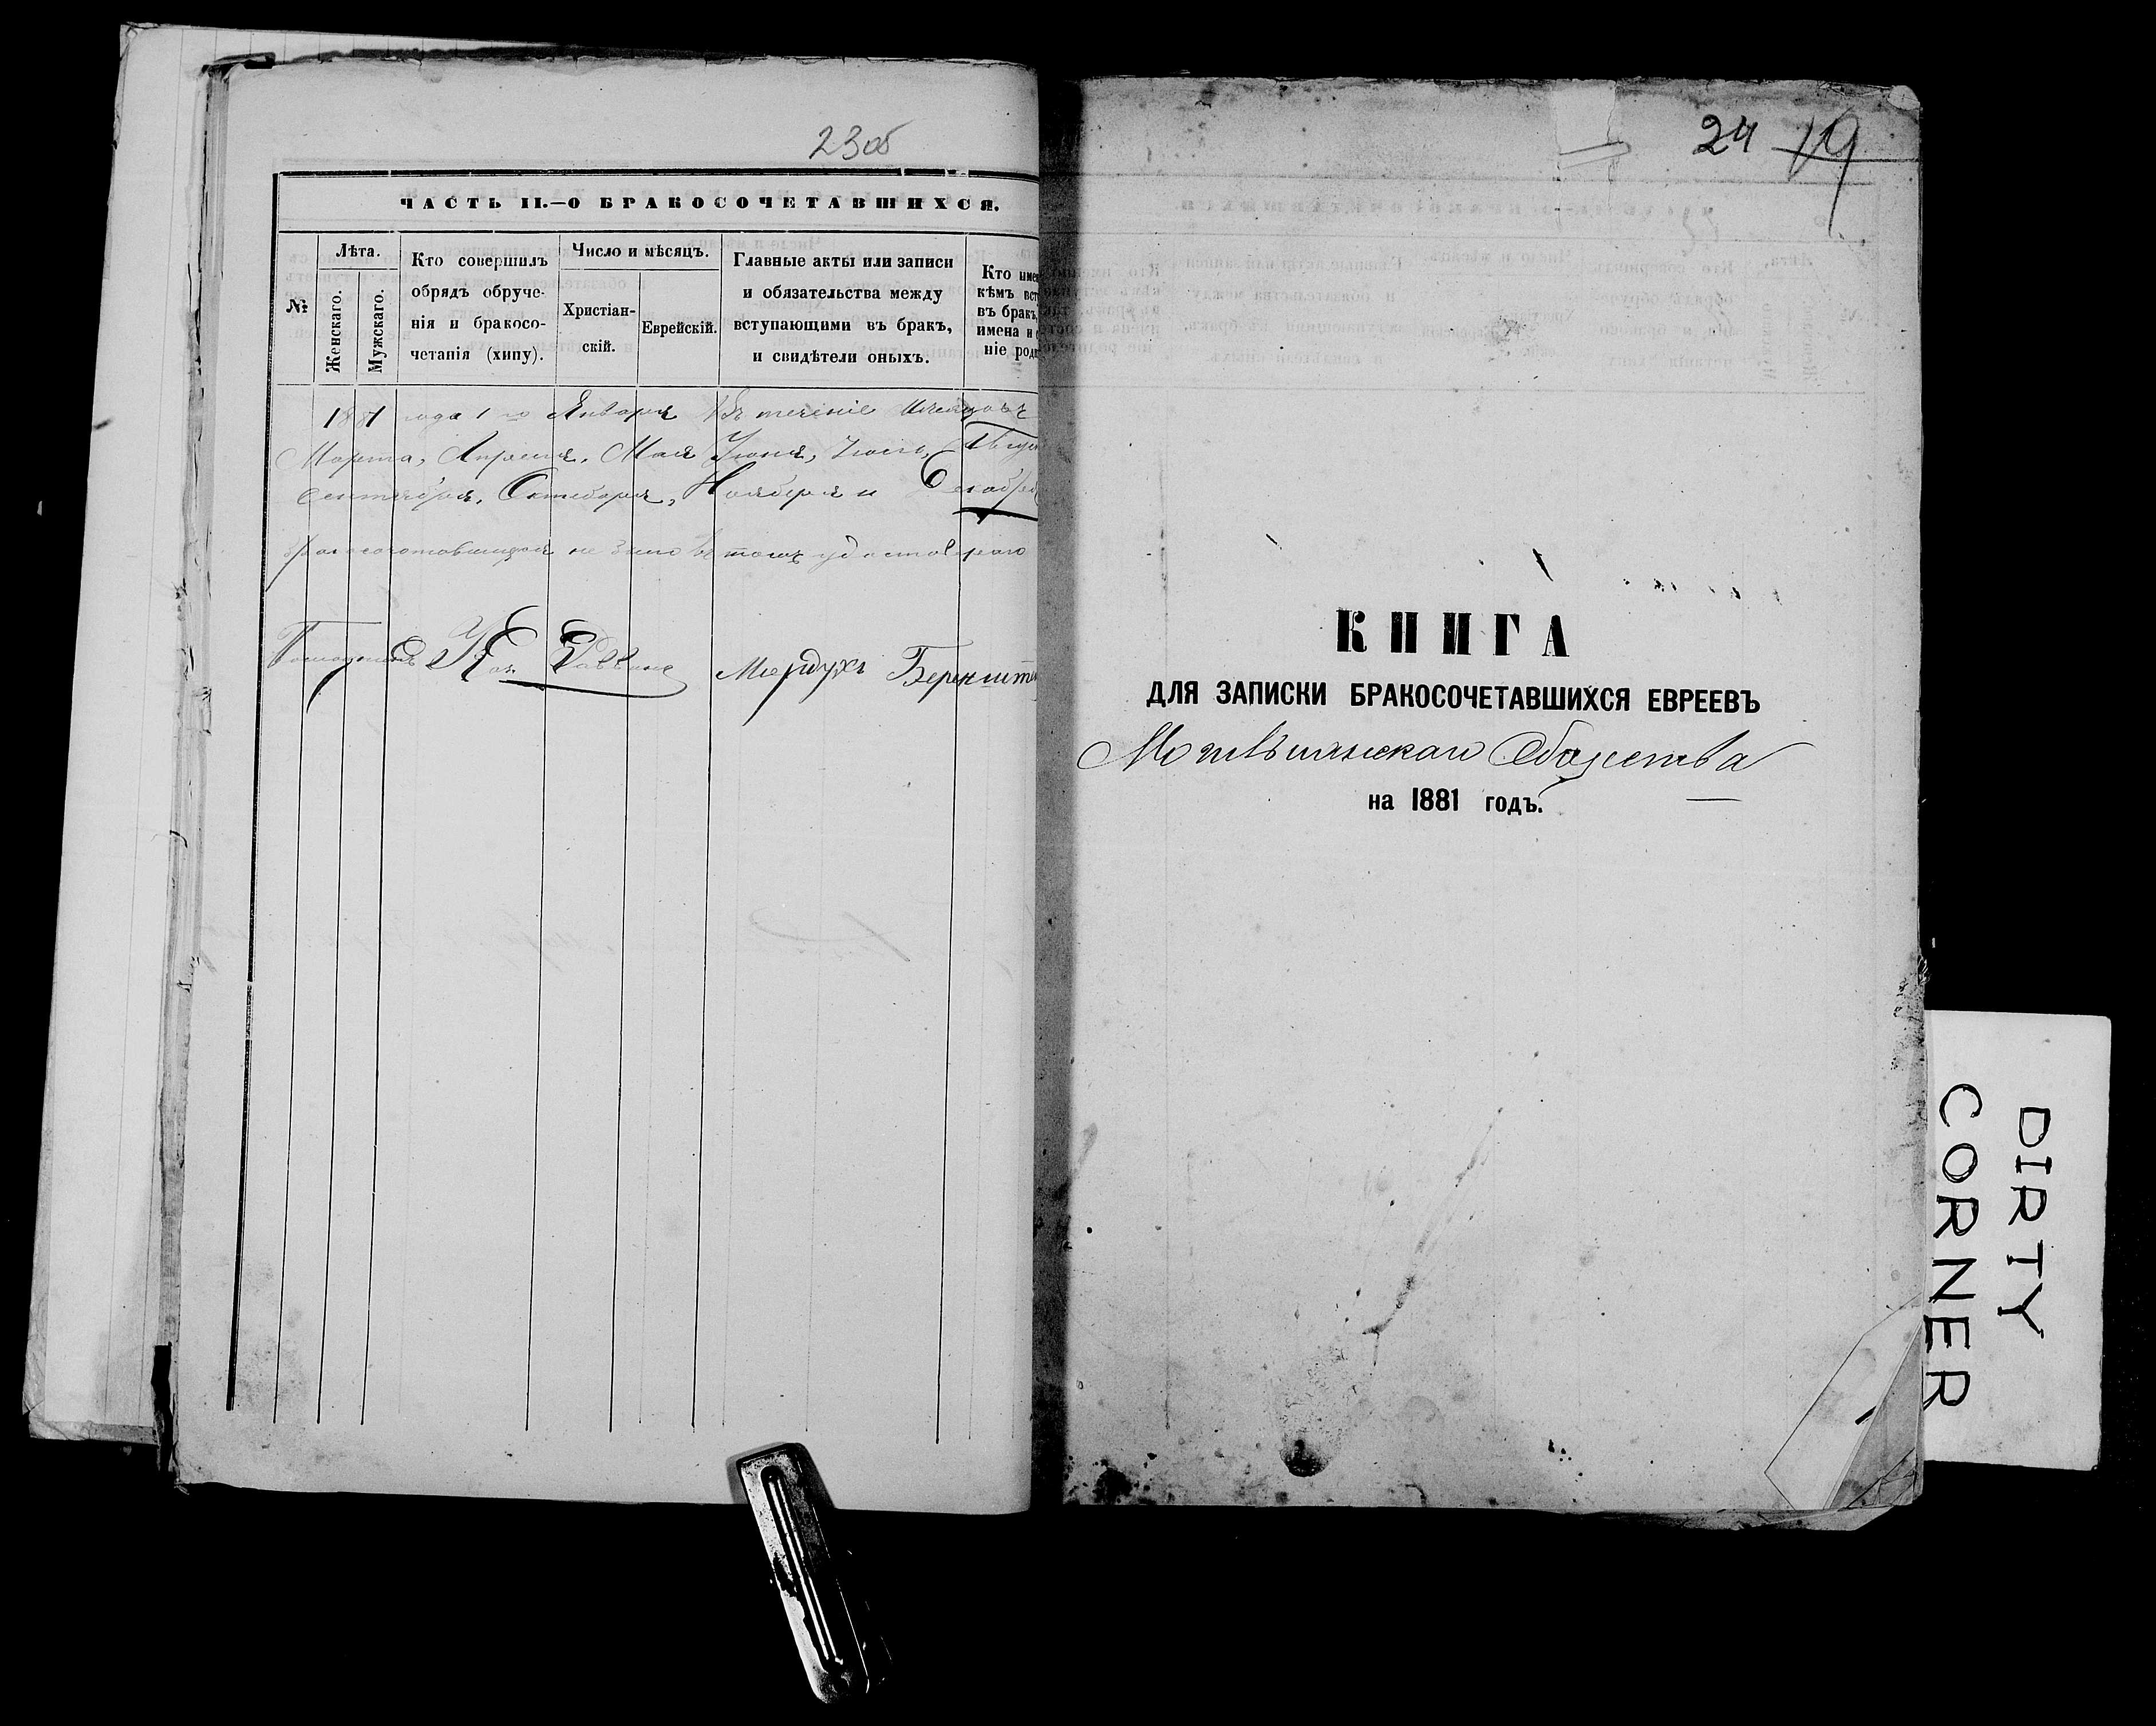 23об
ЧАСТЬ II.—О БРАКОСОЧЕТАВШИХСЯ.
№
Лѣта.
Женскаго.
Мужскаго.
Кто совершилъ
обрядъ обруче-
нія и бракосо-
четанія (хипу).
Число и мѣсяцъ.
Христіан-
скій.
Еврейскій.
Главные акты или записи
и обязательства между
вступающими въ бракъ,
и свидѣтели оныхъ.
Кто име
кѣмъ вст
въ бракъ,
имена и
ніе роди
1881 года 1 го Января Въ теченіе
Марта, Апреля, Мая Іюня, Іюль, Авгу
Сентября, Октября, Ноября и Декабря
бракосочетовшихся не было въ томъ удостоверяю
Каз. Раввина Мордухъ Беренште
24 19
КНИГА
ДЛЯ ЗАПИСКИ БРАКОСОЧЕТАВШИХСЯ ЕВРЕЕВЪ
Общества
на 1881 годъ.
DIRTY
CORNER